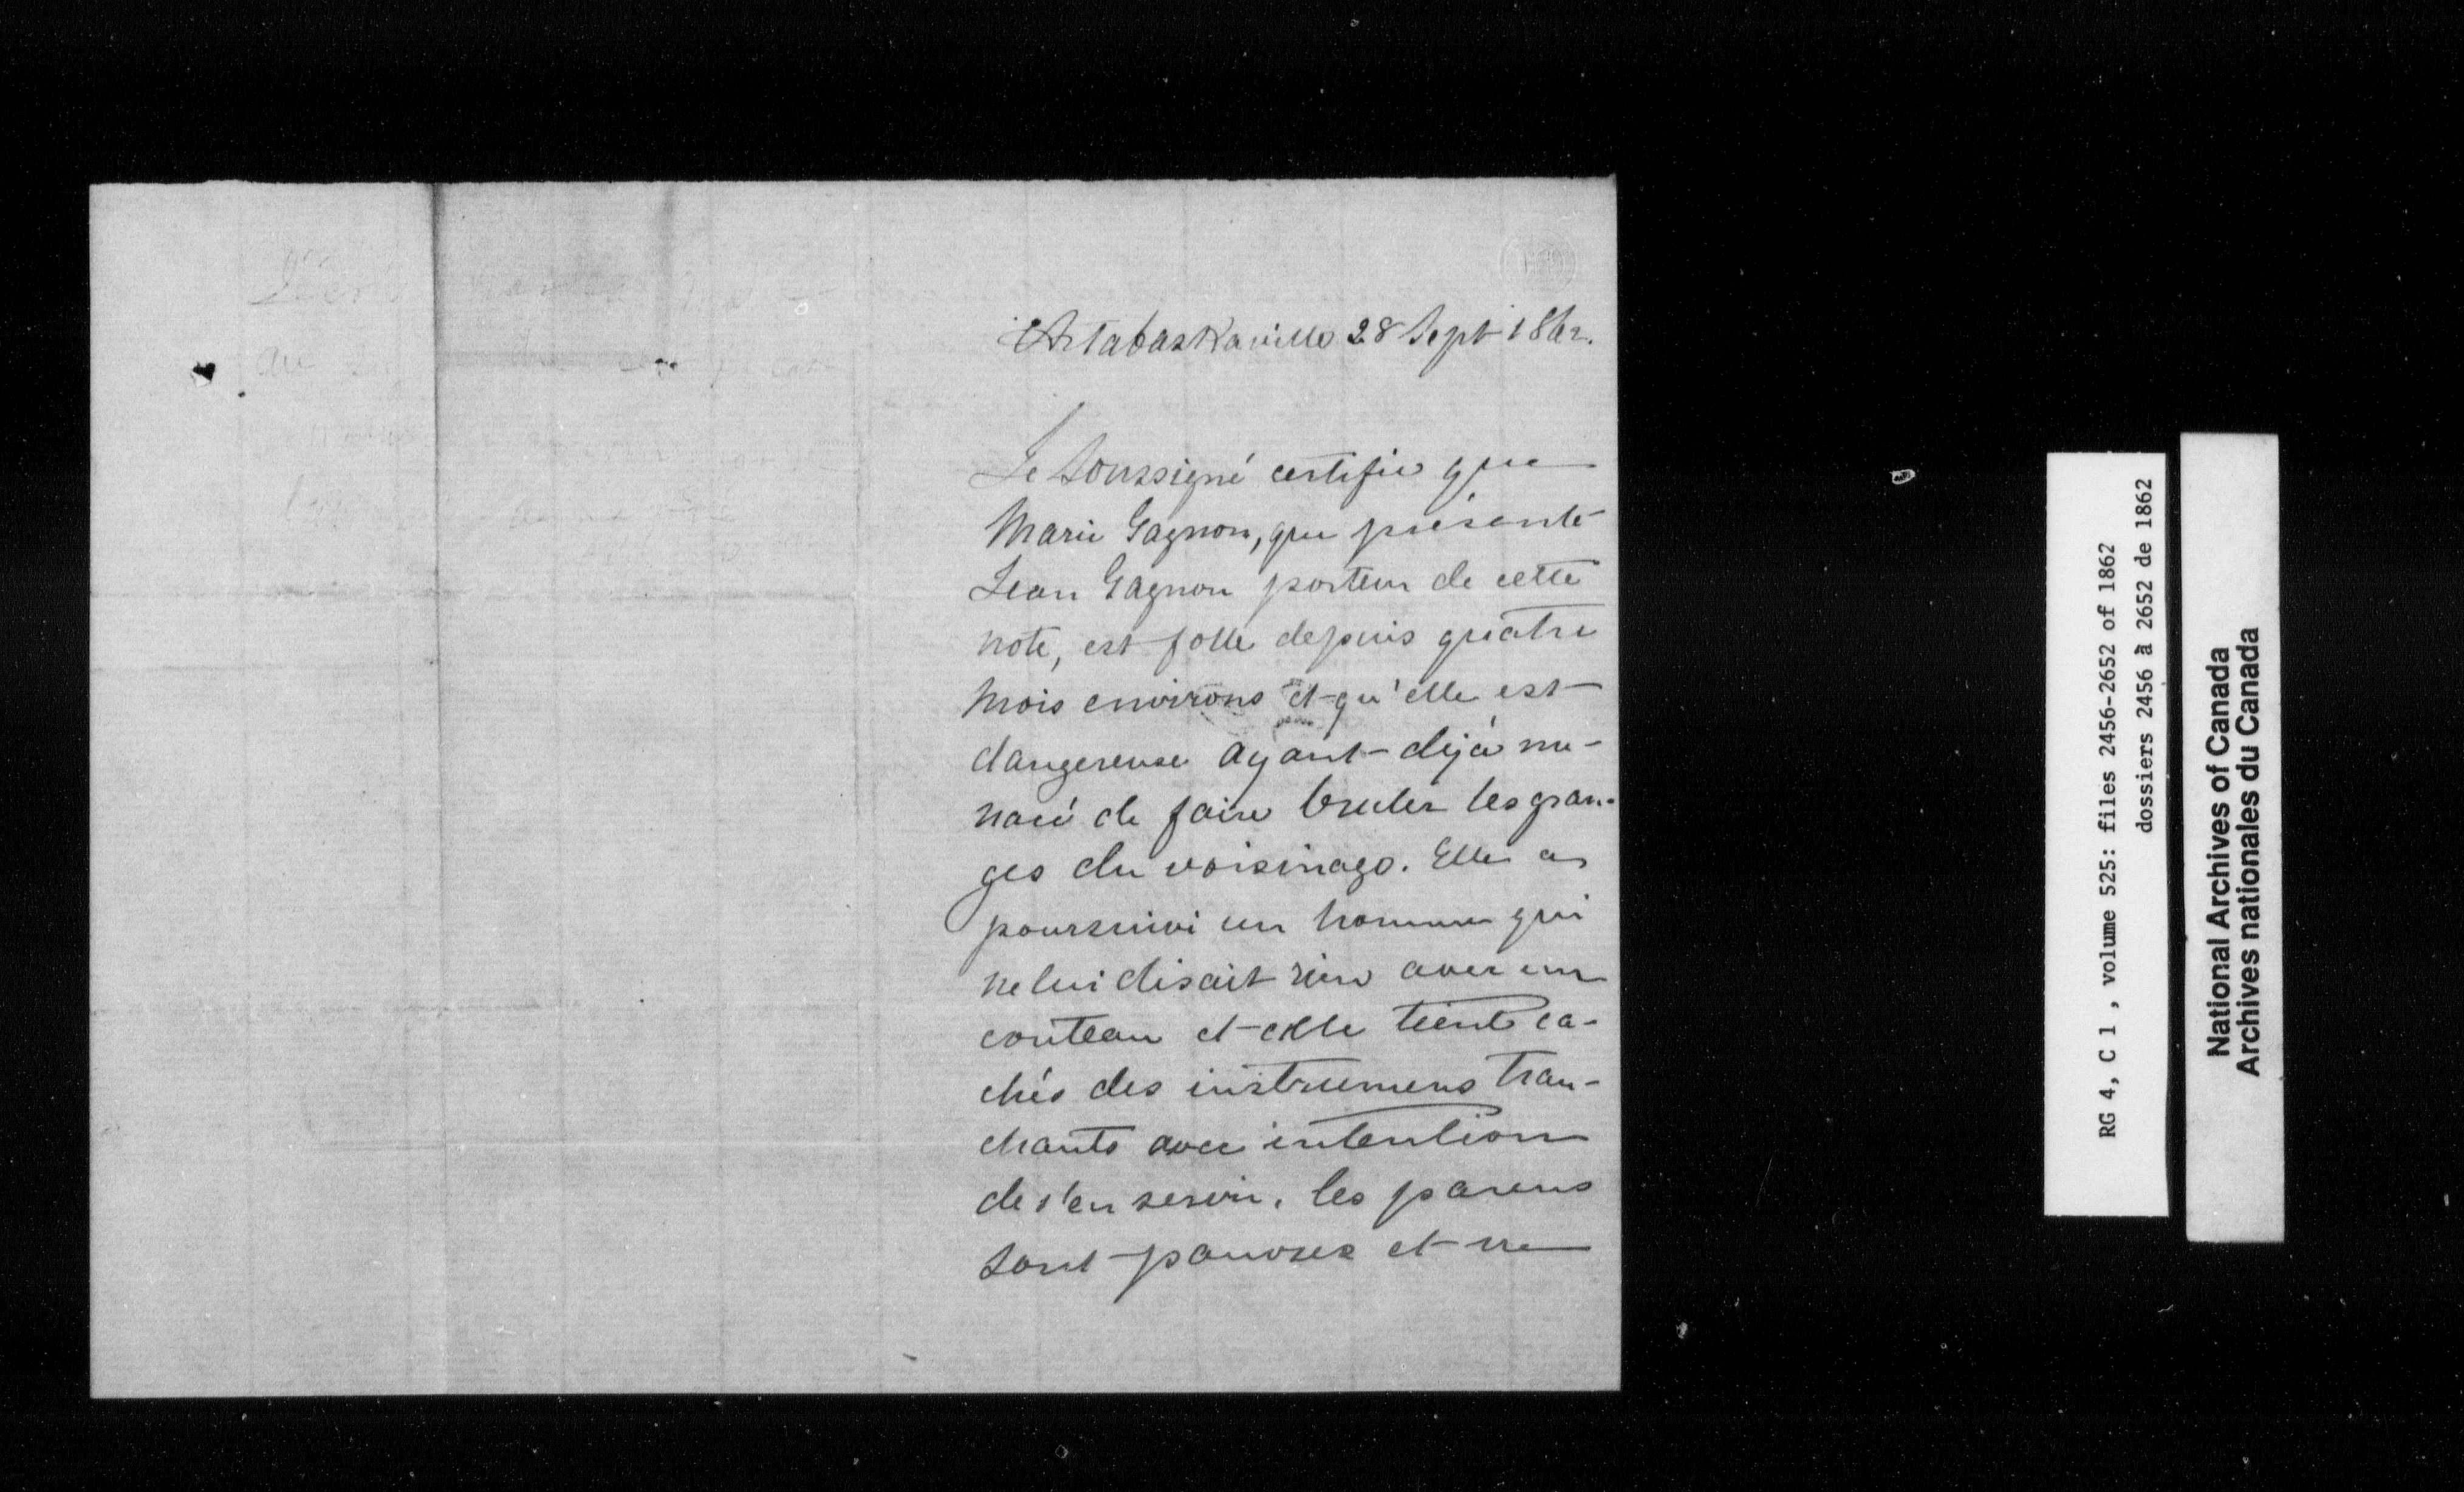 Artabaskaville 28 Sept 1862.
Je soussigné certifie que
Marie Gagnon, que présente
Jean Gagnon porteur de cette
note, est folle depuis quatre
mois environs et qu'elle est
dangereuse ayant déjà me-
nacé de faire bruler les gran-
ges du voisinage. Elle a
poursuivi un homme qui
ne lui disait rien avec un
couteau et elle tient ca-
chés des instrumens tran-
chants avec intention
de s'en servir. les parens
sont pauvres et ne
RG 4, C 1 , volume 525: files 2456-2652 of 1862
dossiers 2456 à 2652 de 1862
National Archives of Canada
Archives nationales du Canada